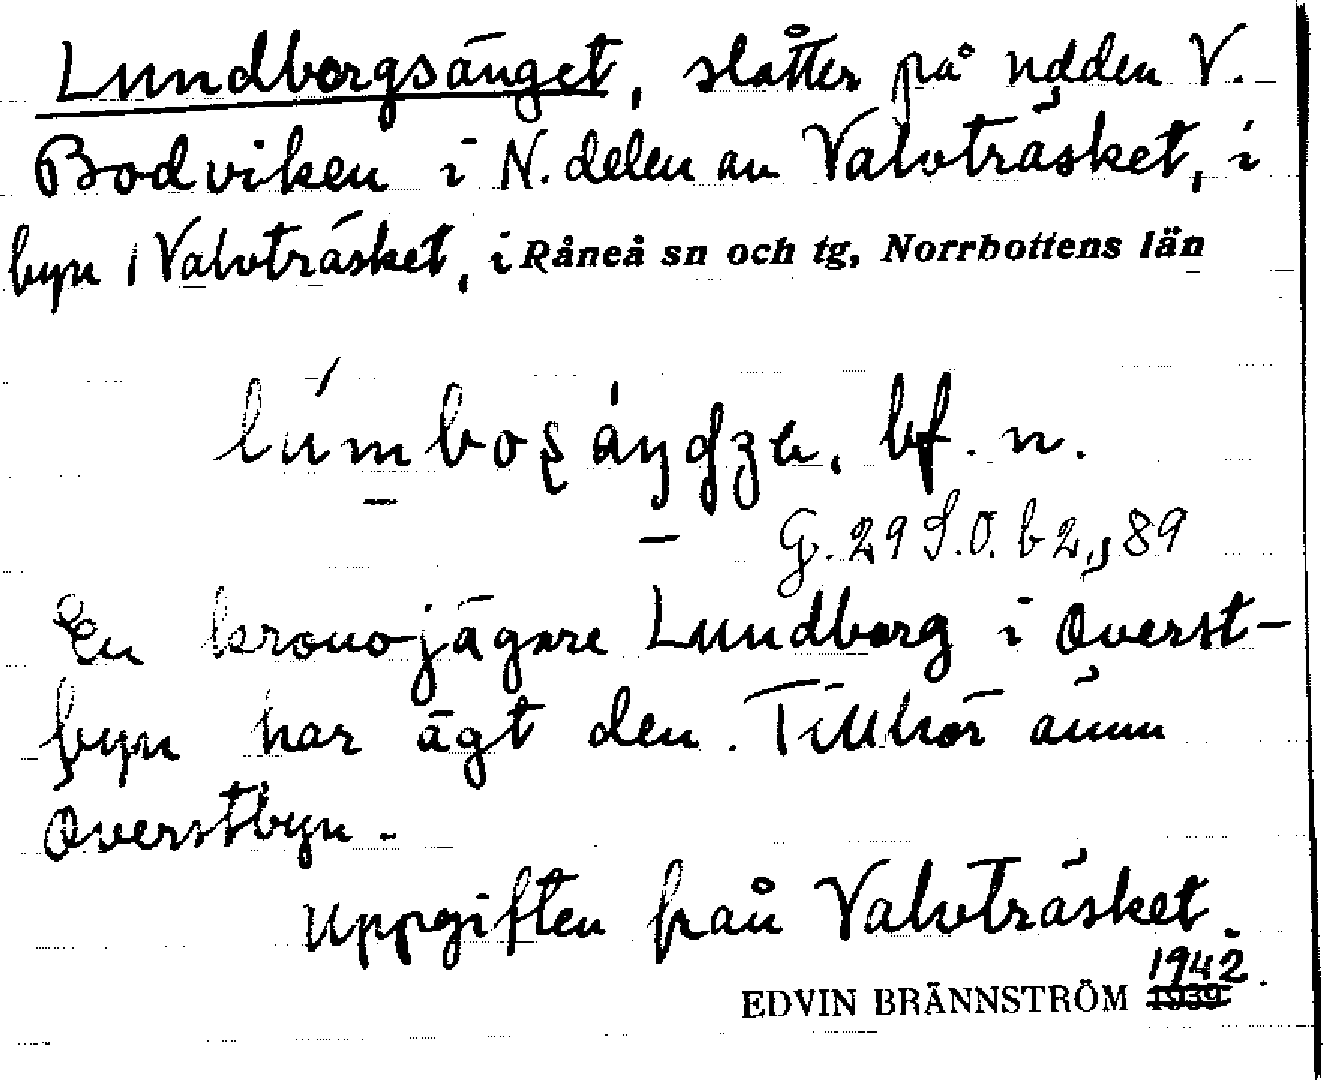 Lundborgsänget, slåtter på udden V.
Bodviken i N. delen av Valvträsket, i
byn Valvträsket, i Råneå sn och tg, Norrbottens län
bf. n.
G. 29 S.O. b 2, 89
En kronojägare Lundborg i Överst-
byn har ägt den. Tillhör ännu
Överstbyn.
Uppgiften från Valvträsket.
1942.
EDVIN BRÄNNSTRÖM 1939